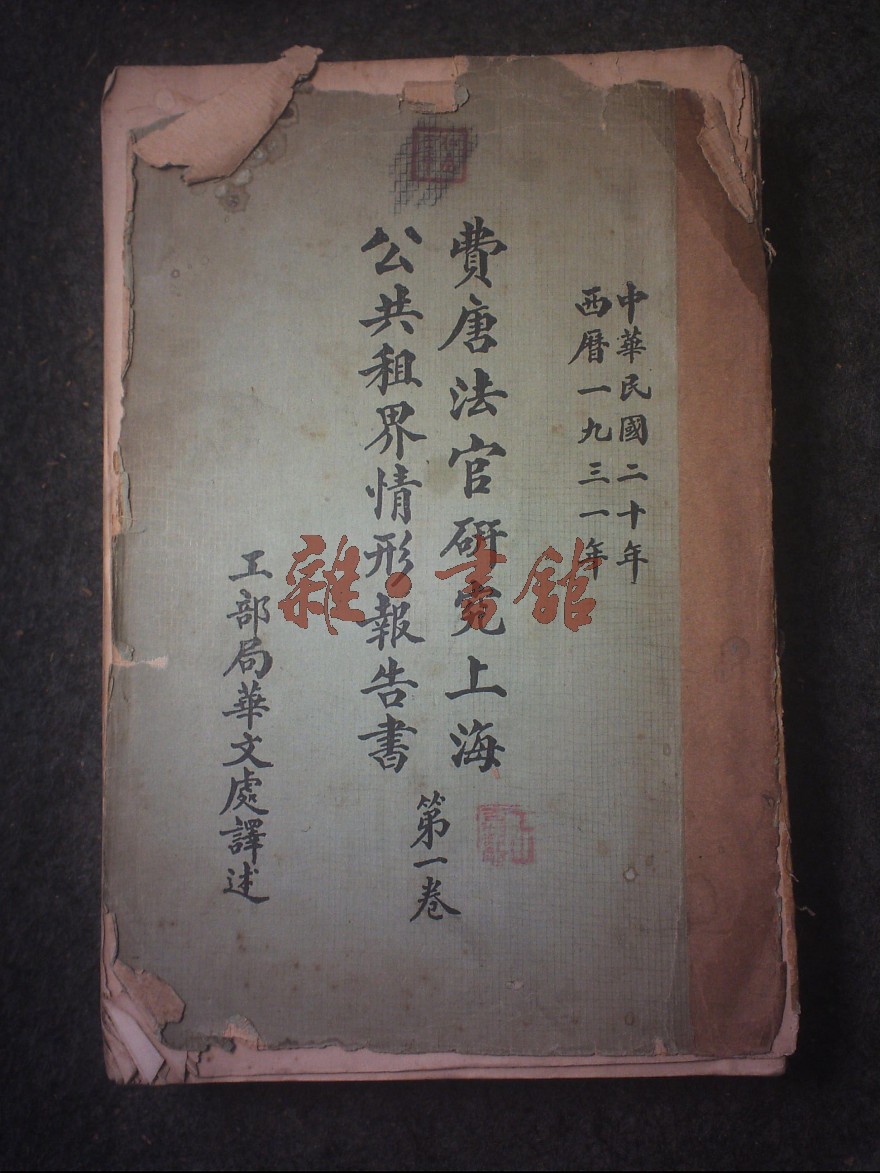 中華民國二十年
西曆一九三一年
費唐法官研究上海
公共租界情形報告書
第一卷
工部局華文處譯述
雜·書館